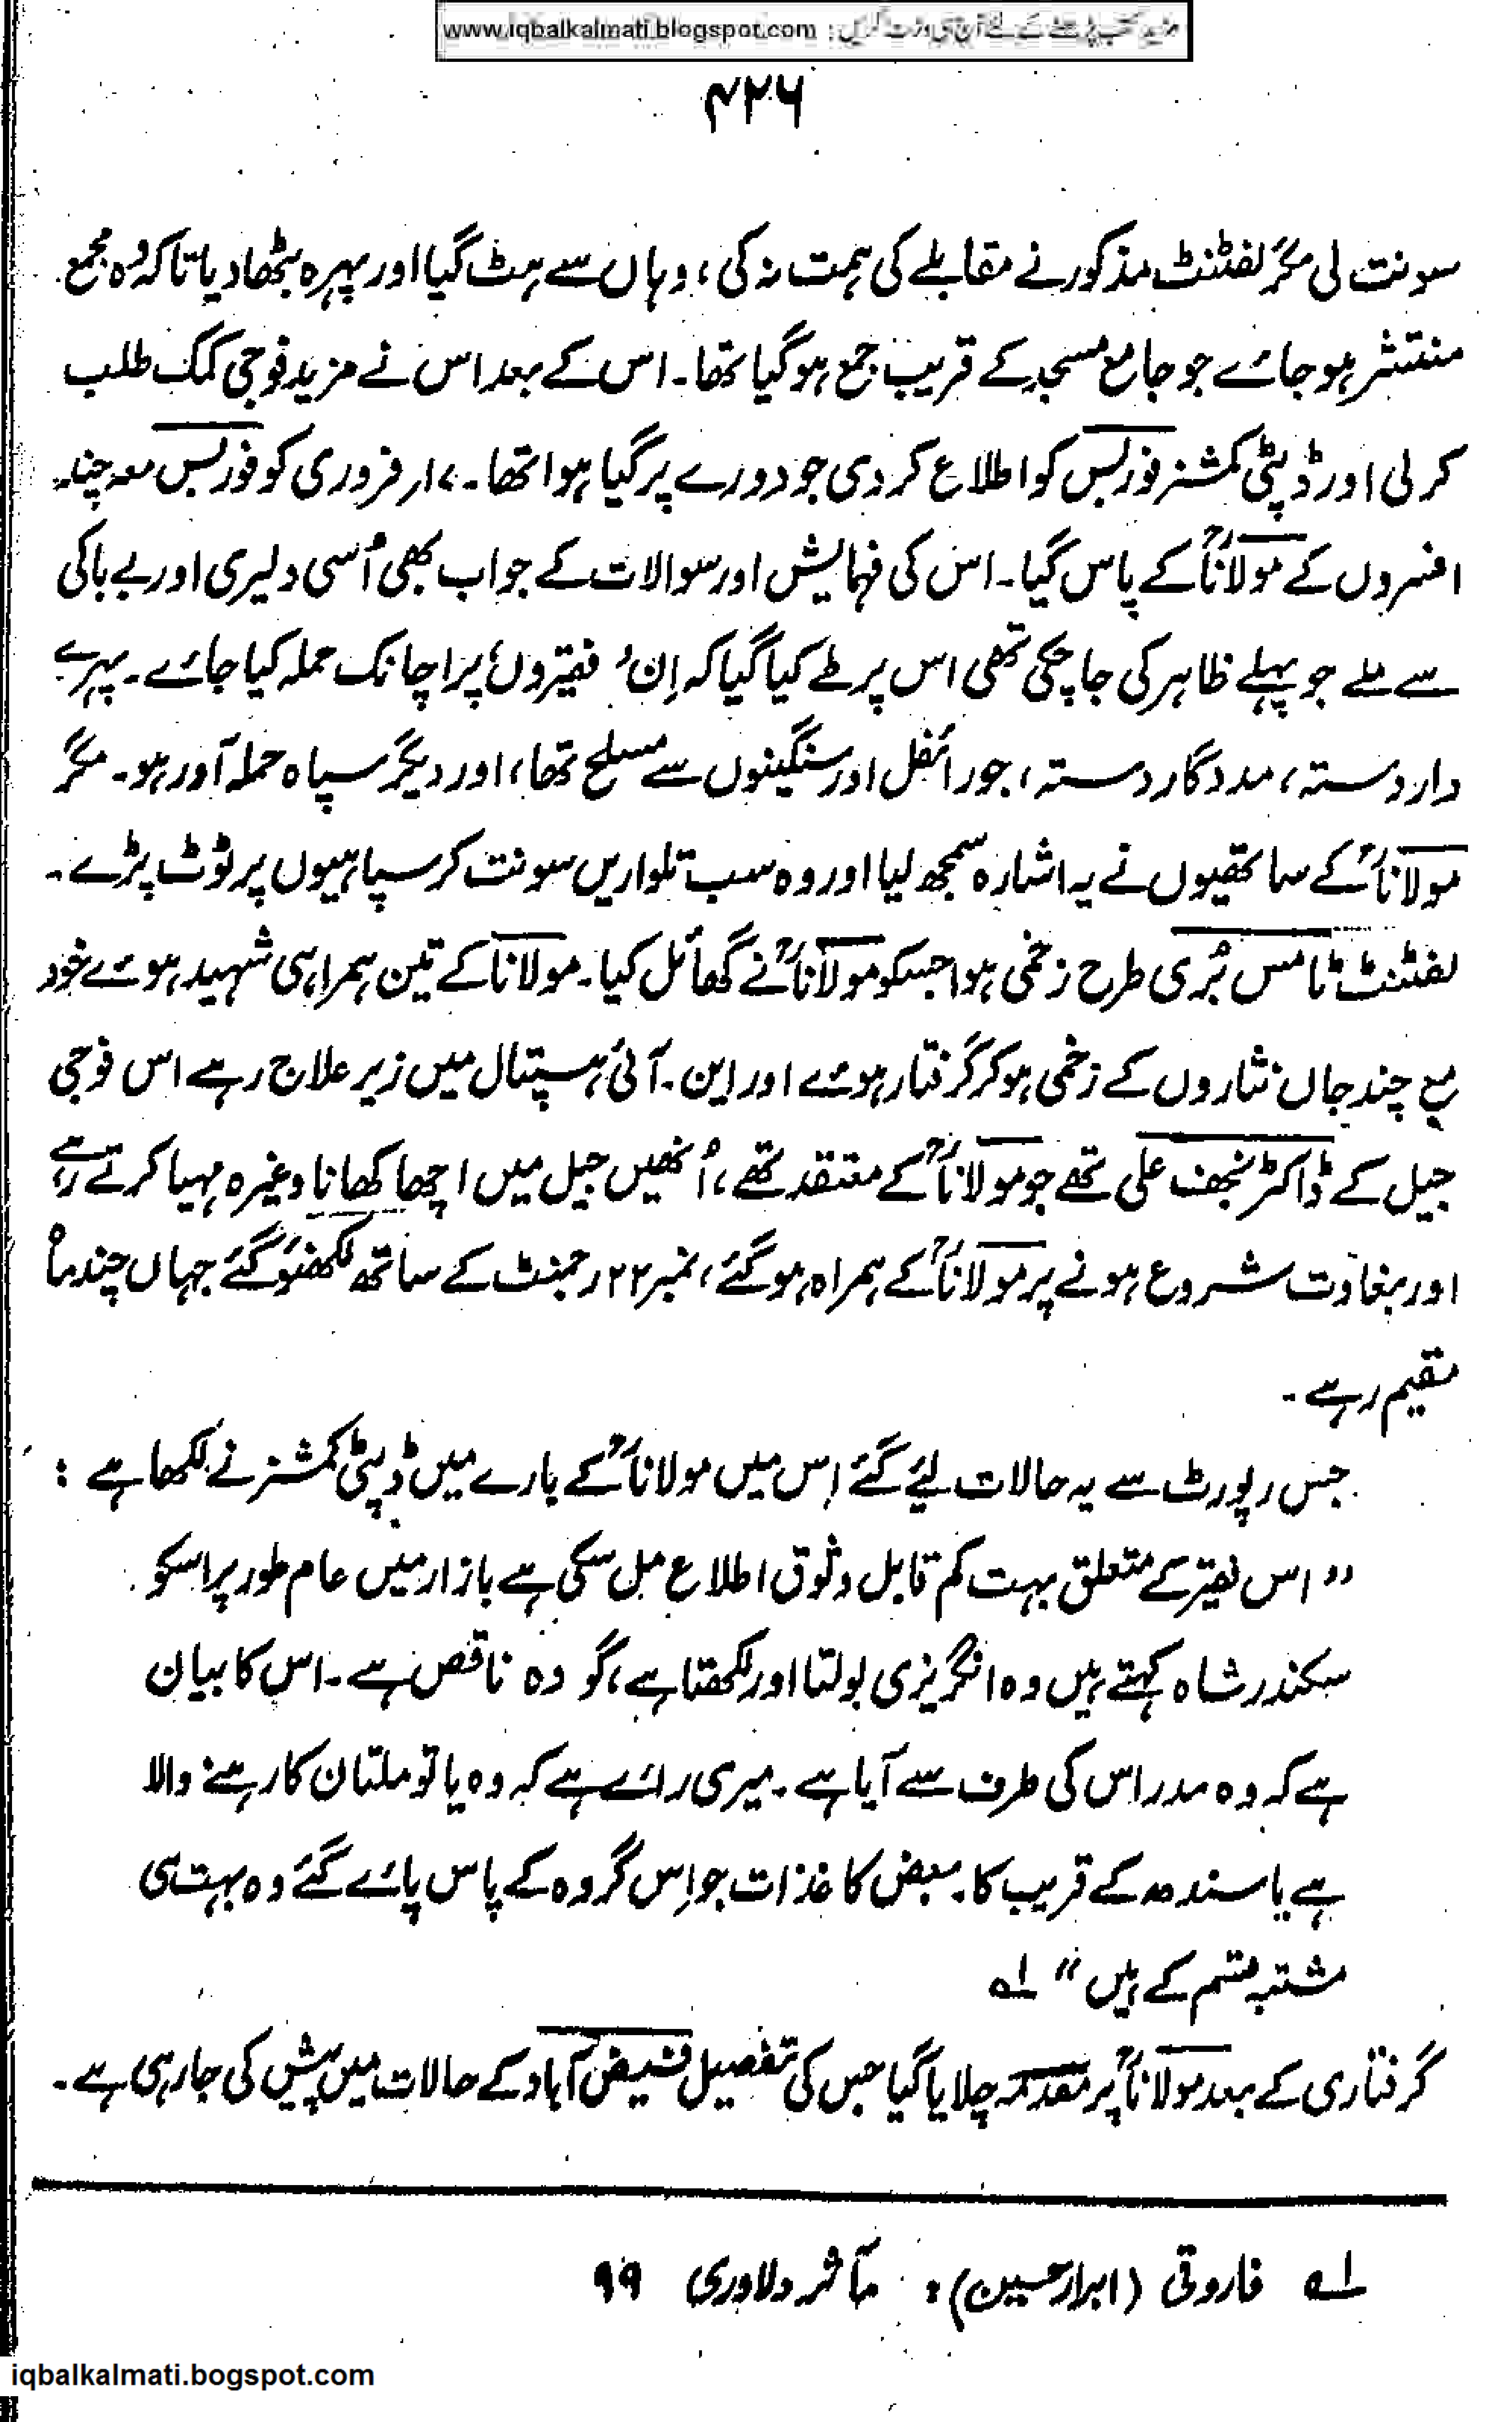 مزید کتب پڑھنے کے لئے آج ہی وزٹ کریں : www.iqbalkalmati.blogspot.com
۴۲۶
سونت لی مگر لفٹننٹ مذکور نے مقابلے کی ہمت نہ کی، وہاں سے ہٹ گیا اور پہرہ بٹھا دیا تا کہ وُہ مجمع
منتشر ہو جائے جو جامع مسجد کے قریب جمع ہو گیا تھا۔ اس کے بعد اس نے مزید فوجی کمک طلب
کر لی اور ڈپٹی کمشنر فوربس کو اطلاع کر دی جو دورے پر گیا ہوا تھا۔ ۱۷ر فروری کو فوربس معہ چند
افسروں کے مولاناؒ کے پاس گیا۔ اس کی فہمایش اور سوالات کے جواب بھی اُسی دلیری اور بے باکی
سے ملے جو پہلے ظاہر کی جا چکی تھی اس پر طے کیا گیا کہ اِن ’فقیروں‘ پر اچانک حملہ کیا جائے۔ پہرے
دار دستہ، مددگار دستہ، جو رائفل اور سنگینوں سے مسلح تھا، اور دیگر سپاہ حملہ آور ہو۔ مگر
مولاناؒ کے ساتھیوں نے یہ اشارہ سمجھ لیا اور وہ سب تلواریں سونت کر سپاہیوں پر ٹوٹ پڑے۔
لفٹننٹ ٹامس بُری طرح زخمی ہوا جسکو مولاناؒ نے گھائل کیا۔ مولانا کے تین ہمراہی شہید ہوئے خود
مع چند جاں نثاروں کے زخمی ہو کر گرفتار ہوئے اور این۔ آئی ہسپتال میں زیر علاج رہے اس فوجی
جیل کے ڈاکٹر نجف علی تھے جو مولاناؒ کے معتقد تھے، اُنھیں جیل میں اچھا کھانا وغیرہ مہیا کرتے رہے
اور بغاوت شروع ہونے پر مولاناؒ کے ہمراہ ہو گئے، نمبر ۲۲ رجمنٹ کے ساتھ لکھنؤ گئے جہاں چند ماہ
مقیم رہے۔
جس رپورٹ سے یہ حالات لیئے گئے اِس میں مولاناؒ کے بارے میں ڈپٹی کمشنر نے لکھا ہے :
”اس فقیر کے متعلق بہت کم قابل وثوق اطلاع مل سکی ہے بازار میں عام طور پر اسکو
سکندر شاہ کہتے ہیں وہ انگریزی بولتا اور لکھتا ہے، گو وہ ناقص ہے۔ اس کا بیان
ہے کہ وہ مدراس کی طرف سے آیا ہے۔ میری رائے ہے کہ وہ یا تو ملتان کا رہنے والا
ہے یا سندھ کے قریب کا۔ بعض کاغذات جو اِس گروہ کے پاس پائے گئے وہ بہت ہی
مشتبہ قسم کے ہیں“ ۱ه
گرفتاری کے بعد مولاناؒ پر مقدمہ چلایا گیا جس کی تفصیل فیض آباد کے حالات میں پیش کی جا رہی ہے۔
۱ه فاروقی (ابرار حسین): مآثر دلاوری ۹۹
iqbalkalmati.bogspot.com